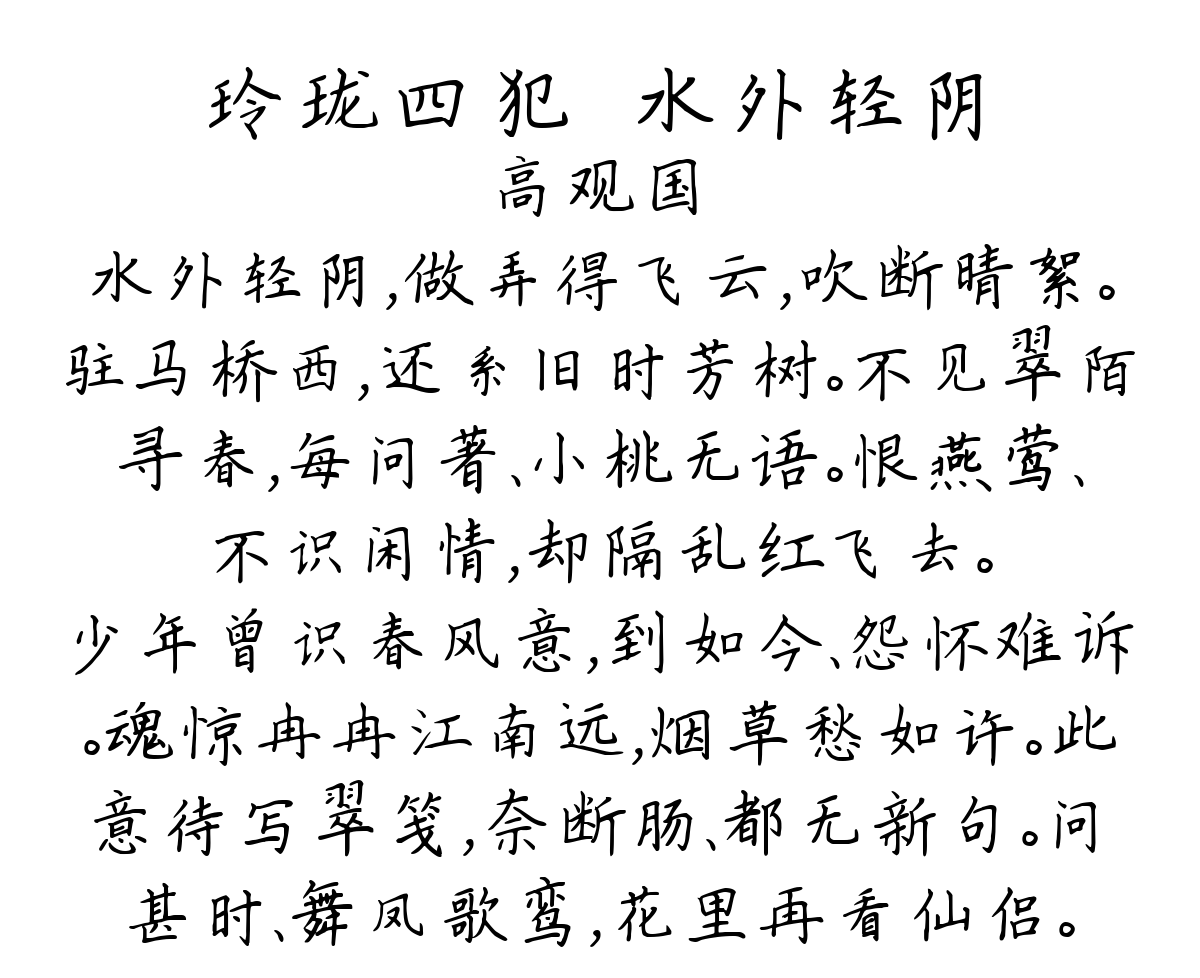 玲珑四犯 水外轻阴
高观国
水外轻阴,做弄得飞云,吹断晴絮。
驻马桥西,还系旧时芳树。不见翠陌
寻春,每问著、小桃无语。恨燕莺、
不识闲情,却隔乱红飞去。
少年曾识春风意,到如今、怨怀难诉
。魂惊冉冉江南远,烟草愁如许。此
意待写翠笺,奈断肠、都无新句。问
甚时、舞凤歌鸾,花里再看仙侣。